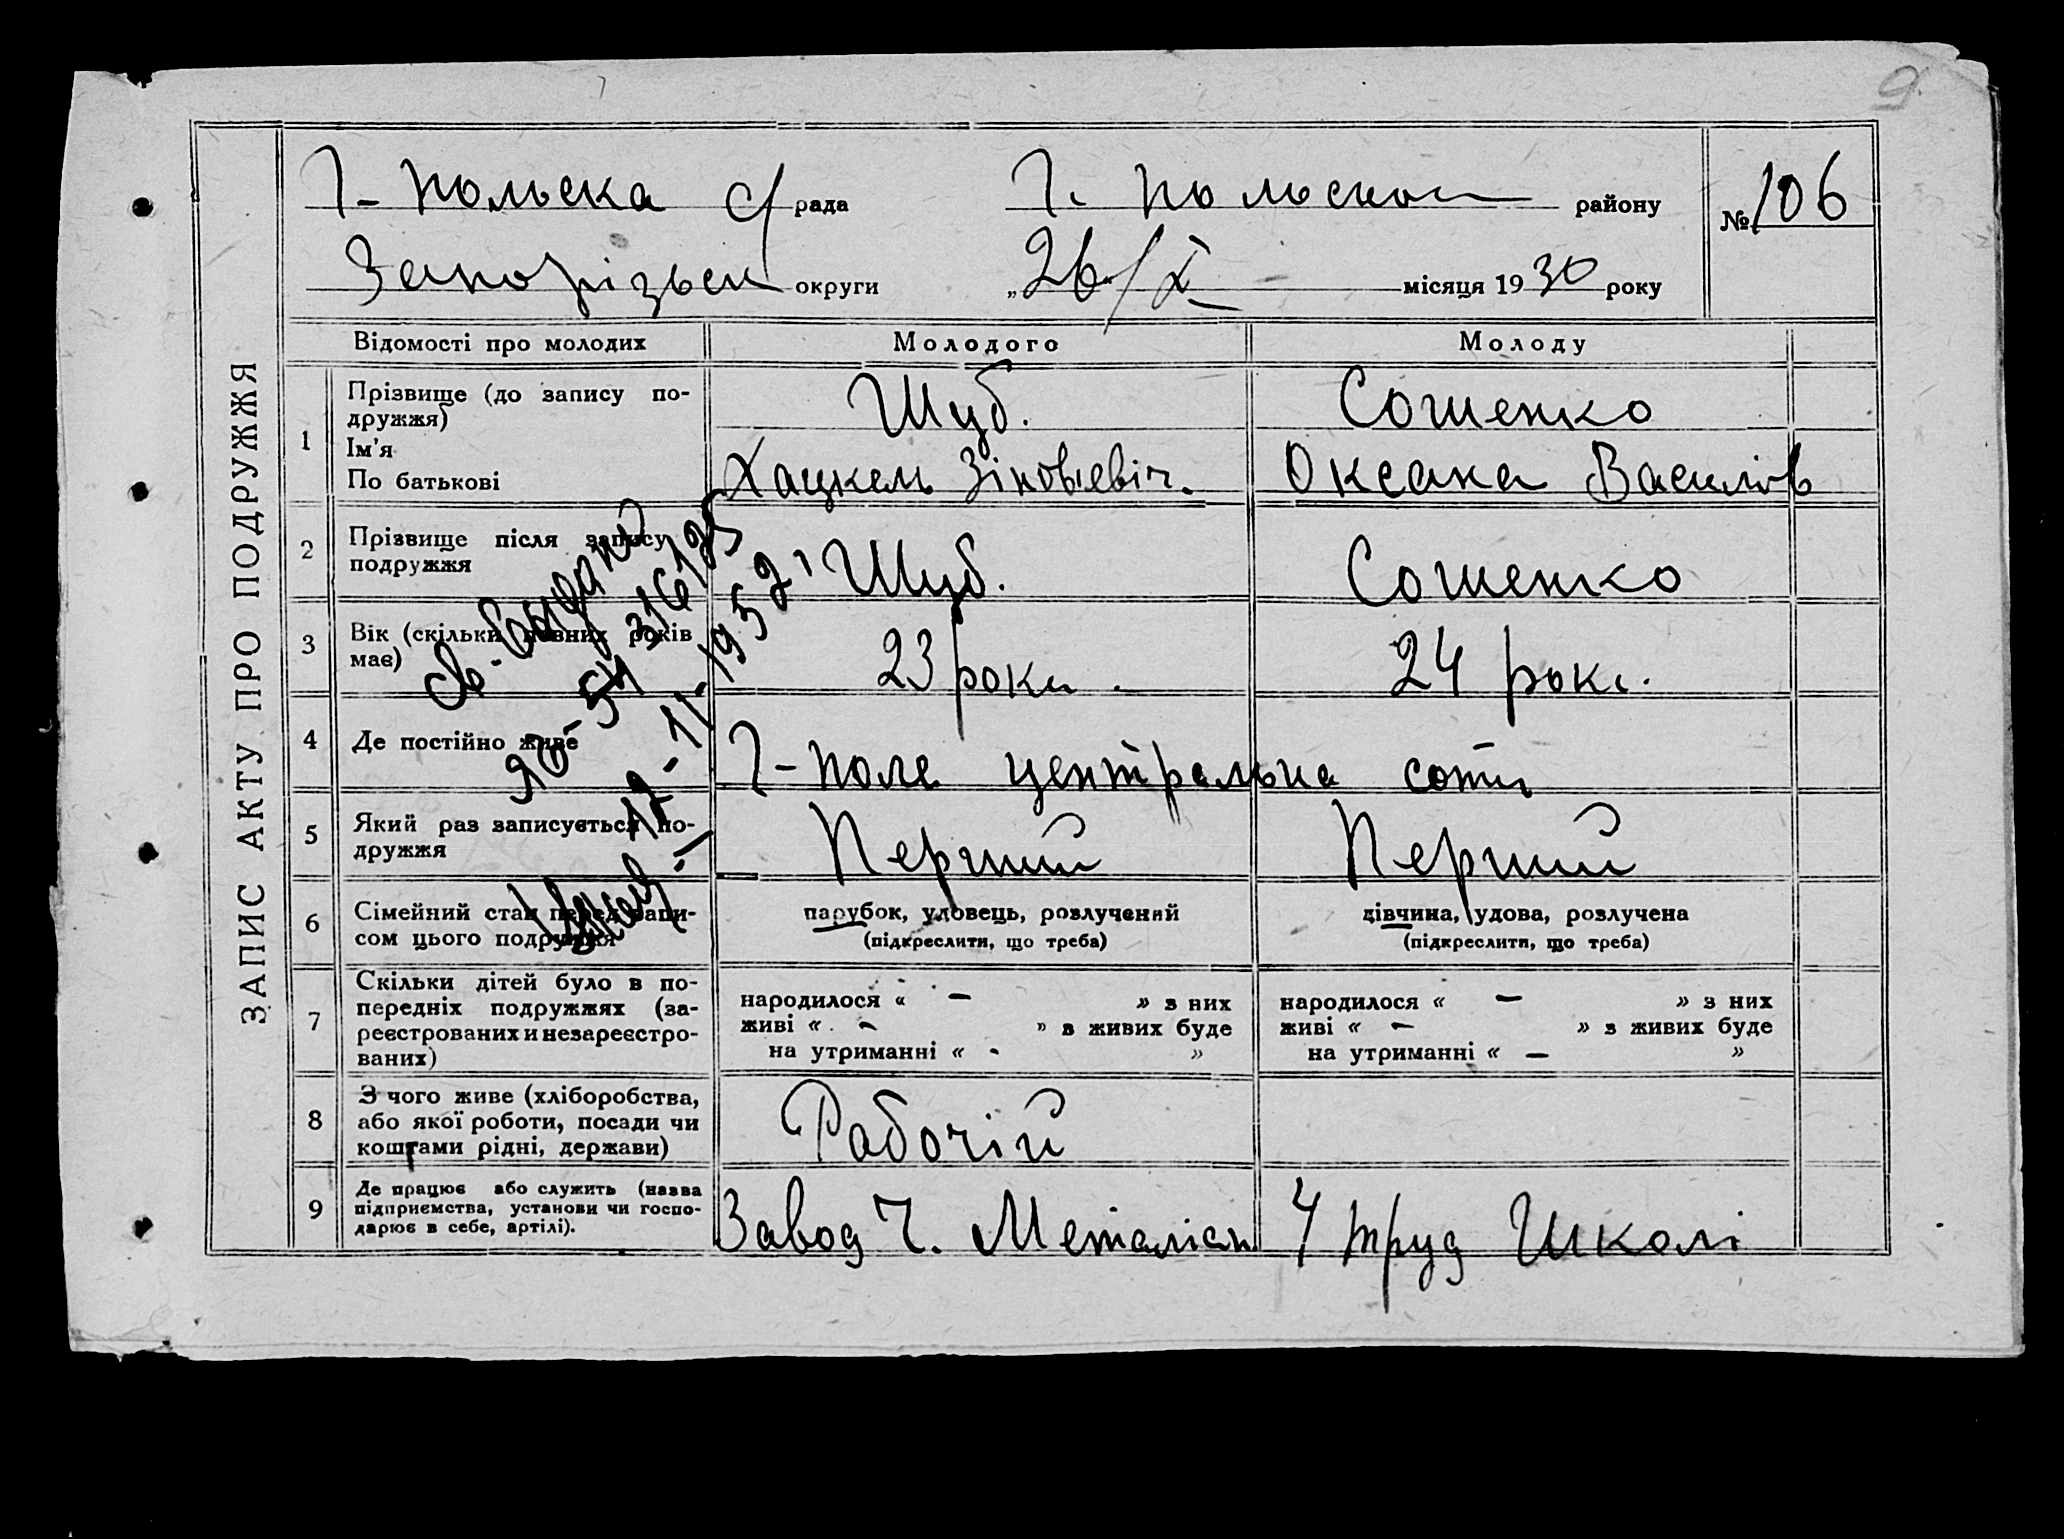 9
ЗАПИС АКТУ ПРО ПОДРУЖЖЯ
Г-польска с/рада
Г. польськ районy
№ 106
Запорізьк округи
„26/X місяця 1930 року
Відомості про молодих
Молодого
Молоду
1
Прізвище (до запису по-
дружжя)
Ім'я
По батькові
Шуб.
Хацкель Зіновьевіч.
Сошенко
Оксана Василів
2
Прізвище після запису
подружжя
Шуб.
Сошенко
3
Вік (скільки повних років
має)
23 роки.
24 рокі.
4
Де постійно живе
Г-поле центральна сотн
5
Який раз записується по-
дружжя
Перший
Перший
6
Сімейний стан перед запи-
сом цього подружжя
парубок, удовець, розлучений
(підкреслити, що треба)
дівчина, удова, розлучена
(підкреслити, що треба)
7
Скільки дітей було в по-
передніх подружжях (за-
реєстрованих и незареєстро-
ваних)
народилося « — » з них
живі « — » з живих буде
на утриманні « - »
народилося « — » з них
живі « — » з живих буде
на утриманні « — »
8
З чого живе (хліборобства,
або якої роботи, посади чи
коштами рідні, держави)
Рабочій
9
Де працює або служить (назва
підприємства, установи чи госпо-
дарює в себе, артілі).
Завод Ч. Металіст
У труд Школі
св. выдано
ЯО-ЯЧ 316125
17-11-1952